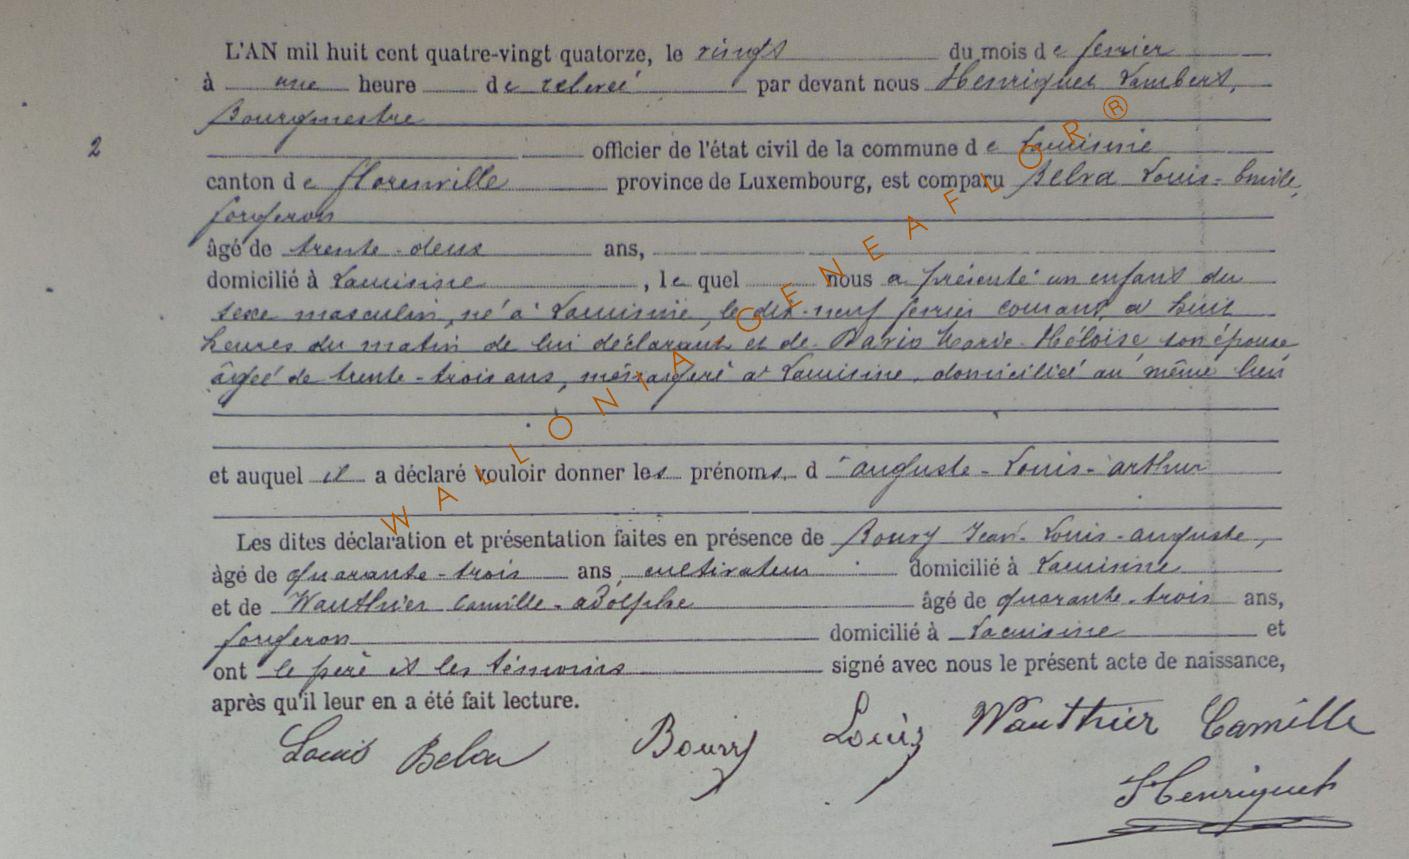 L'AN mil huit cent quatre-vingt quatorze, le vingt du mois de fevrier
à une heure de relevée par devant nous Henriquet Lambert,
Bourgmestre
2
officier de l'état civil de la commune de Lacuisine
canton de florenville province de Luxembourg, est comparu Belva Louis-Emile,
forgeron
âgé de trente-deux ans,
domicilié à Lacuisine, lequel nous a présenté un enfant du
sexe masculin, né à Lacuisine, le dix-neuf fevrier courant, à huit
heures du matin, de lui déclarant et de Marie-Héloise son épouse
âgée de trente-trois ans, ménagère à Lacuisine, domiciliée au même lieu
et auquel il a déclaré vouloir donner les prénoms d'auguste-Louis-arthur
Les dites déclaration et présentation faites en présence de Boury Jean-Louis-auguste,
âgé de quarante-trois ans, cultivateur domicilié à Lacuisine
et de Wauthier Camille-adolphe âgé de quarante-trois ans,
forgeron domicilié à Lacuisine et
ont le père et les témoins signé avec nous le présent acte de naissance,
après qu'il leur en a été fait lecture.
Louis Belva Boury Louis Wauthier Camille
Henriquet
WALLONIA GENEAFLOR®